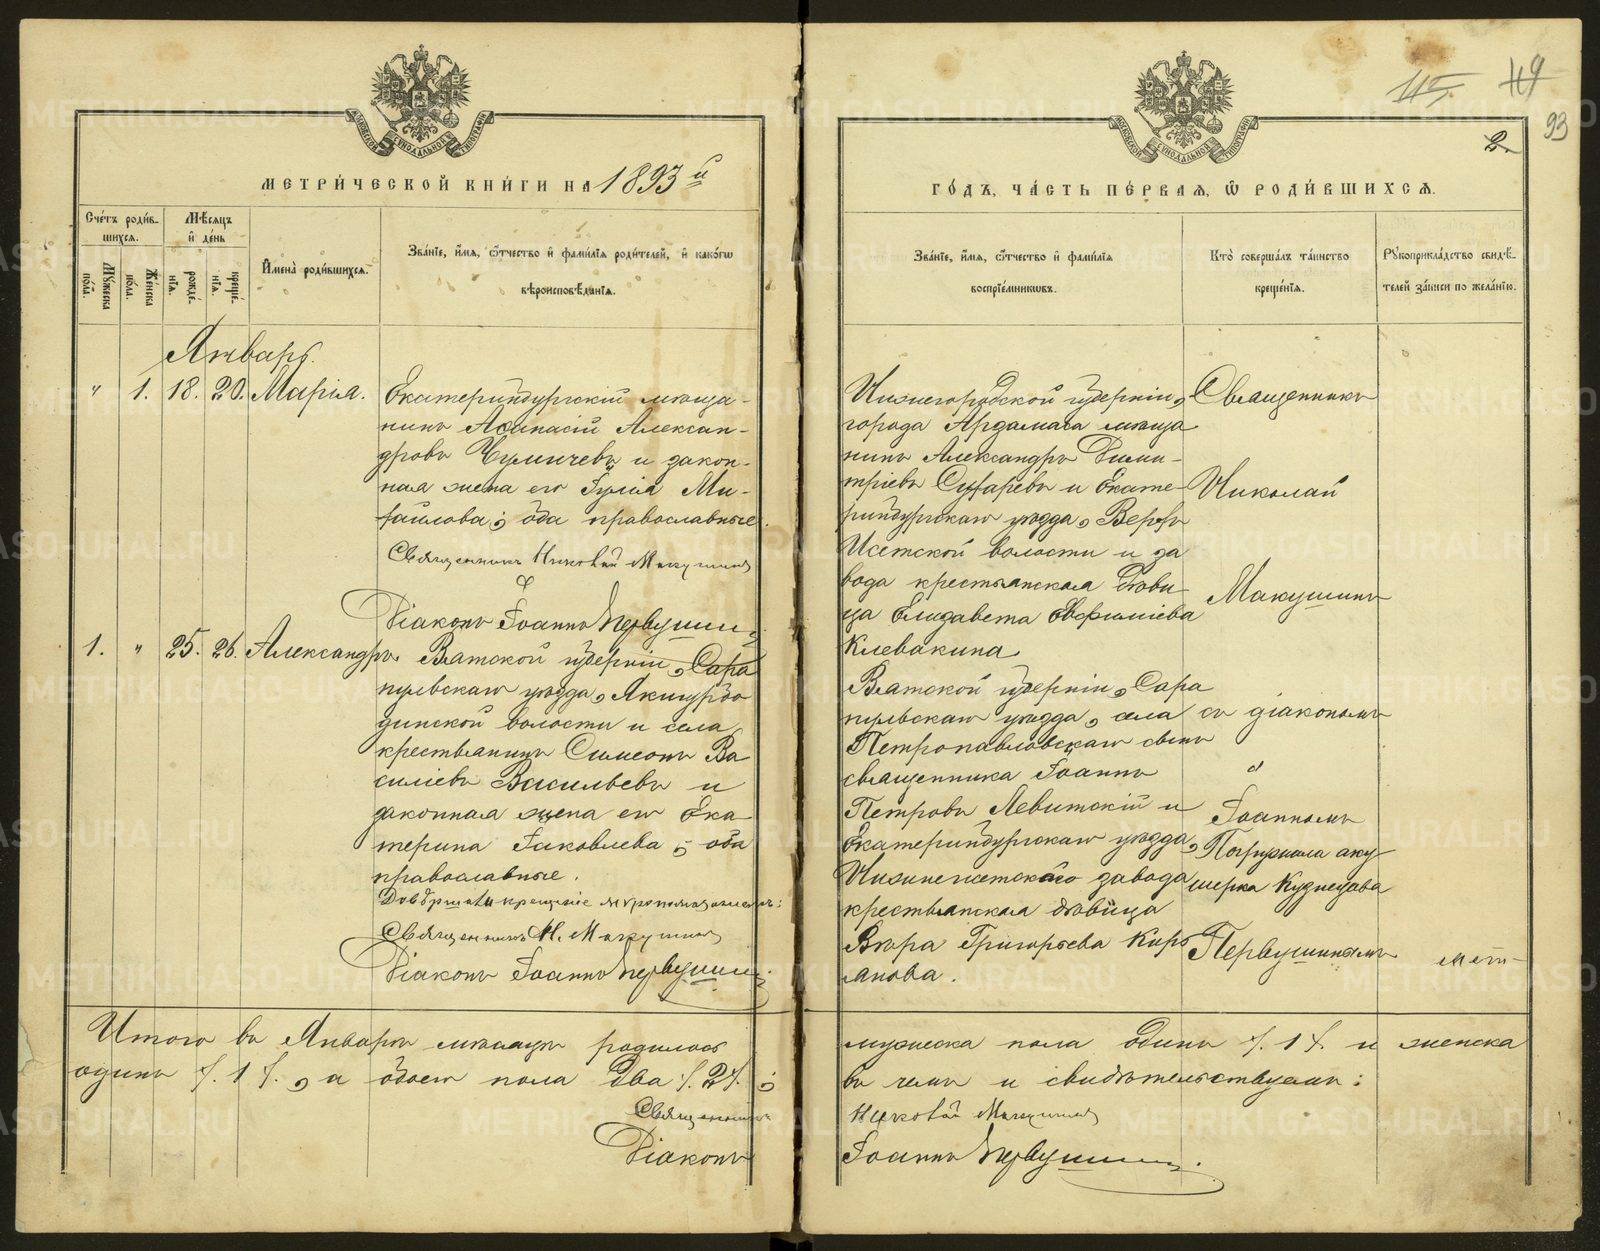 МЕТРИ́ЧЕСКОЙ КНИ́ГИ НА 1893й
Сче́тъ роди́в-
шихся.
Мѣ́сяцъ
и҆ де́нь
Му́жеска
по́ла.
Же́нска
по́ла.
рожде́-
нія.
креще́-
нія.
И҆мена̀ роди́вшихся.
Зва́нїе, и҆́мя, ѻ҆́тчество и҆ фами́лїя роди́телей, и҆ како́гѡ
вѣроисповѣ́данїя.
Январь.
" 1. 18. 20. Марія.
Екатеринбургскій мѣща-
нинъ Аѳанасій Алексан-
дровъ Чуличевъ и закон-
ная жена его Іулія Ми-
хаилова; оба православные.
Священникъ Николай Макушинъ
Діаконъ Іоаннъ Первушинъ
1. " 25. 26. Александръ.
Вятской губерніи, Сара
пульскаго уѣзда,
динской волости и села
крестьянинъ Симеонъ Ва
силіевъ Васильевъ и
законная жена его Ека
терина Іаковлева; оба
православные.
крещеніе мѵропомазаніемъ:
Священникъ Н. Макушинъ
Діаконъ Іоаннъ Первушинъ
Итого въ Январѣ мѣсяцѣ родилось
одинъ /. 1 /. , а обоего пола два /. 2 /. ;
Священникъ
Діаконъ
115.
119
93
2.
ГО́ДЪ, ЧА́СТЬ ПЕ́РВАЯ, Ѽ РОДИ́ВШИХСЯ.
Зва́нїе, и҆́мя, ѻ҆́тчество и҆ фами́лїя
воспрїе́мникѡвъ.
Кто̀ соверша́лъ та́инство
креще́нїя.
Рꙋкоприкла́дство свидѣ́-
телей за́писи по жела́нїю.
Нижегородской губерніи,
города Ардамаса мѣща
нинъ Александръ Дими-
тріевъ Сухаревъ и Екате-
ринбургскаго уѣзда, Верхъ
Исетской волости и за
вода крестьянская дѣви
ца Елизавета Евфиміева
Клевакина.
Священникъ
Николай
Макушинъ
Вятской губерніи, Сара
пульскаго уѣзда, села
Петропавловскаго сынъ
священника Іоаннъ
Петровъ Левитскій и
Екатеринбургскаго уѣзда,
Нижнеисетскаго завода
крестьянская дѣвица
Вѣра Григорьева Кирь
янова.
съ діакономъ
"
Іоанномъ
Погружала аку
шерка Кузнецова
Первушинымъ
мужеска пола одинъ /. 1 /. и женска
въ чемъ и свидѣтельствуемъ:
Николай Макушинъ
Іоаннъ Первушинъ